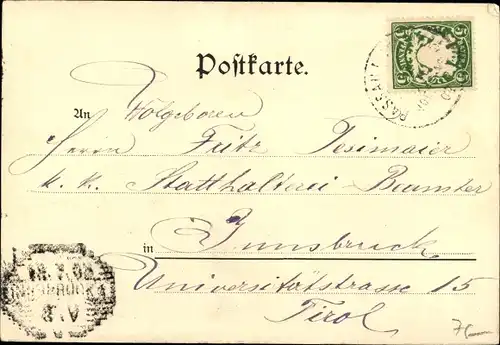 Postkarte.
An Wolgeboren
Herrn Fritz Tesimaier
k. k. Statthalterei-Beamter
in Innsbruck
Universitätsstrasse 15
Tirol
5 5
PASSAU
INNSBRUCK